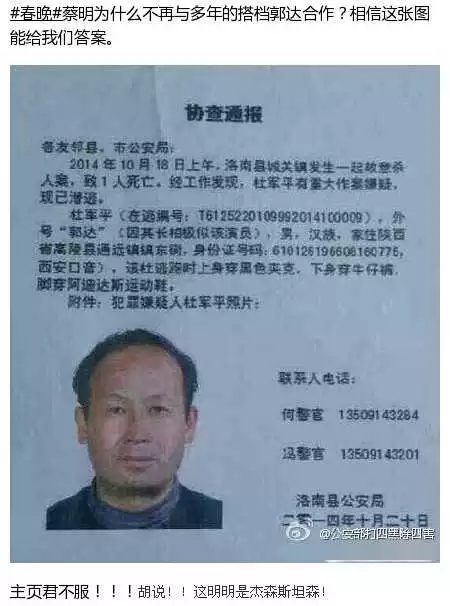 #春晚#蔡明为什么不再与多年的搭档郭达合作？相信这张图
能给我们答案。
协查通报
各友邻县、市公安局：
2014年10月18日上午，洛南县城关镇发生一起故意杀
人案，致1人死亡。经工作发现，杜军平有重大作案嫌疑，
现已潜逃。
杜军平（在逃编号：T6125220109992014100009），外
号“郭达”（因其长相极似该演员），男，汉族，家住陕西
省高陵县通远镇镇东街，身份证号码：610126196608160775，
西安口音），该杜逃跑时上身穿黑色夹克，下身穿牛仔裤，
脚穿阿迪达斯运动鞋。
附件：犯罪嫌疑人杜军平照片：
联系人电话：
何警官 13509143284
冯警官 13509143201
洛南县公安局
二〇一四年十月二十日
@公安部打四黑除四害
主页君不服！！！胡说！！这明明是杰森斯坦森！